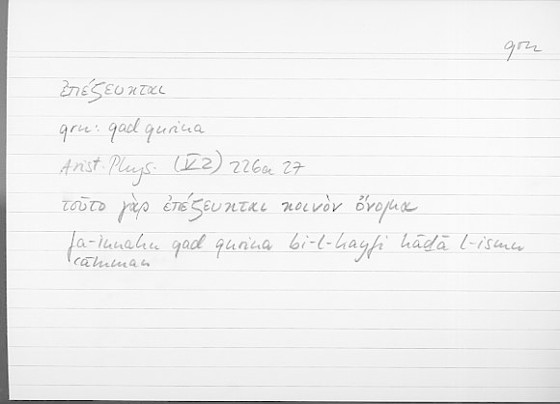 qrn
ἐπέζευκται
qrn: qad qurina
Arist. Phys. (V 2) 226a 27
τοῦτο γὰρ ἐπέζευκται κοινὸν ὄνομα
fa-innahu qad qurina bi-l-kayfi hāḏā l-ismu
ʿāmman